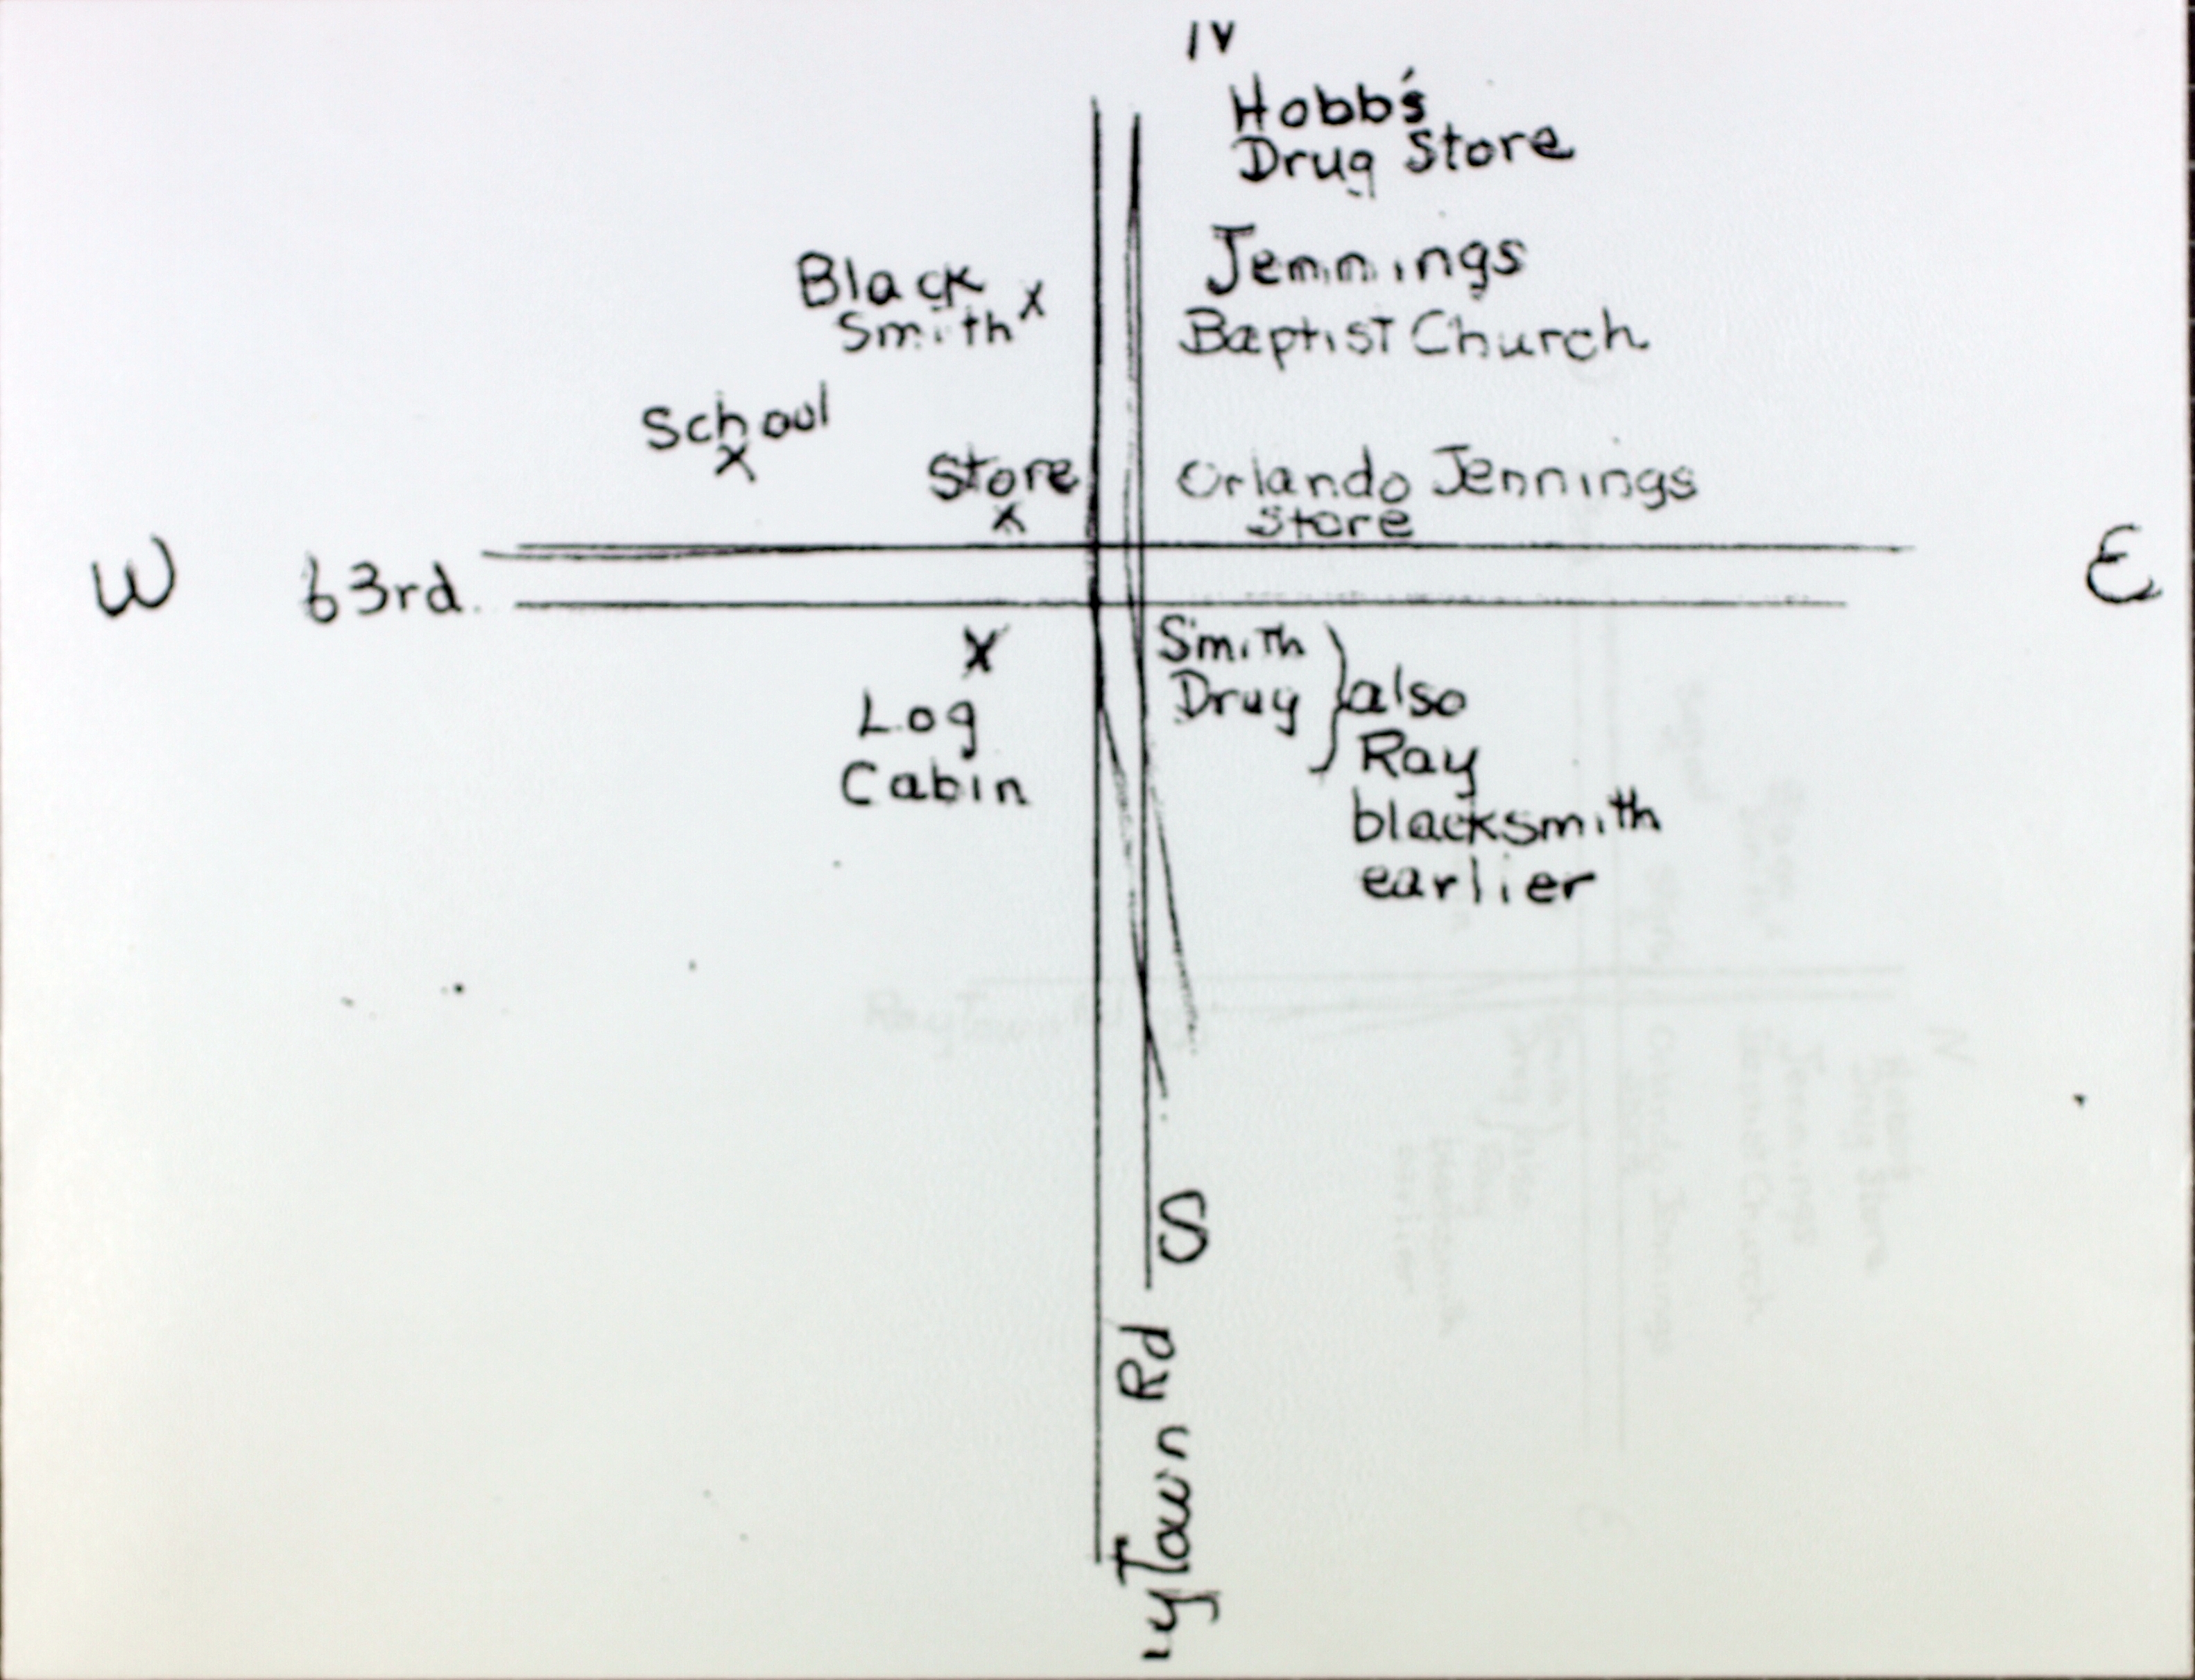 N
Hobb's
Drug Store
Black
Smith x
Jennings
Baptist Church
School
x
Store
x
Orlando Jennings
Store
W
63rd.
E
x
Log
Cabin
Smith
Drug
also
Ray
blacksmith
earlier
S
ytown Rd